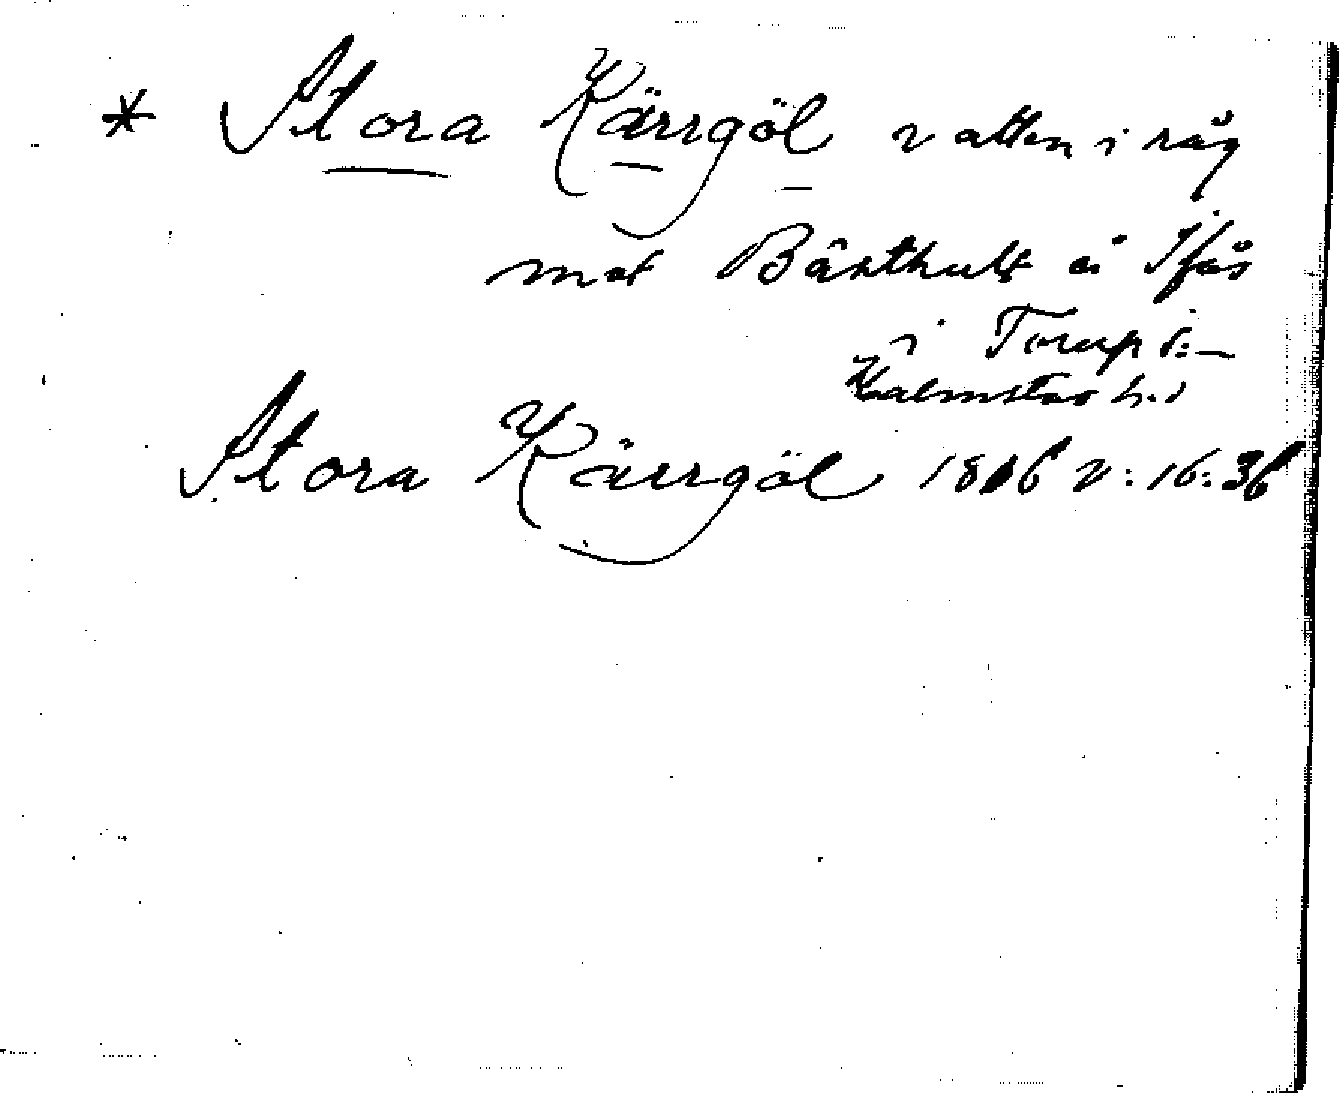 * Stora Kärrgöl vatten i råg
mot Bårthult å Ifås
i Torup s:—
Halmstad h:d
Stora Kärrgöl 1806 v: 16: 36